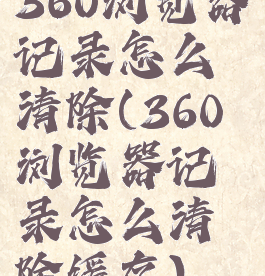 360浏览器
记录怎么
清除(360
浏览器记
录怎么清
除缓存)